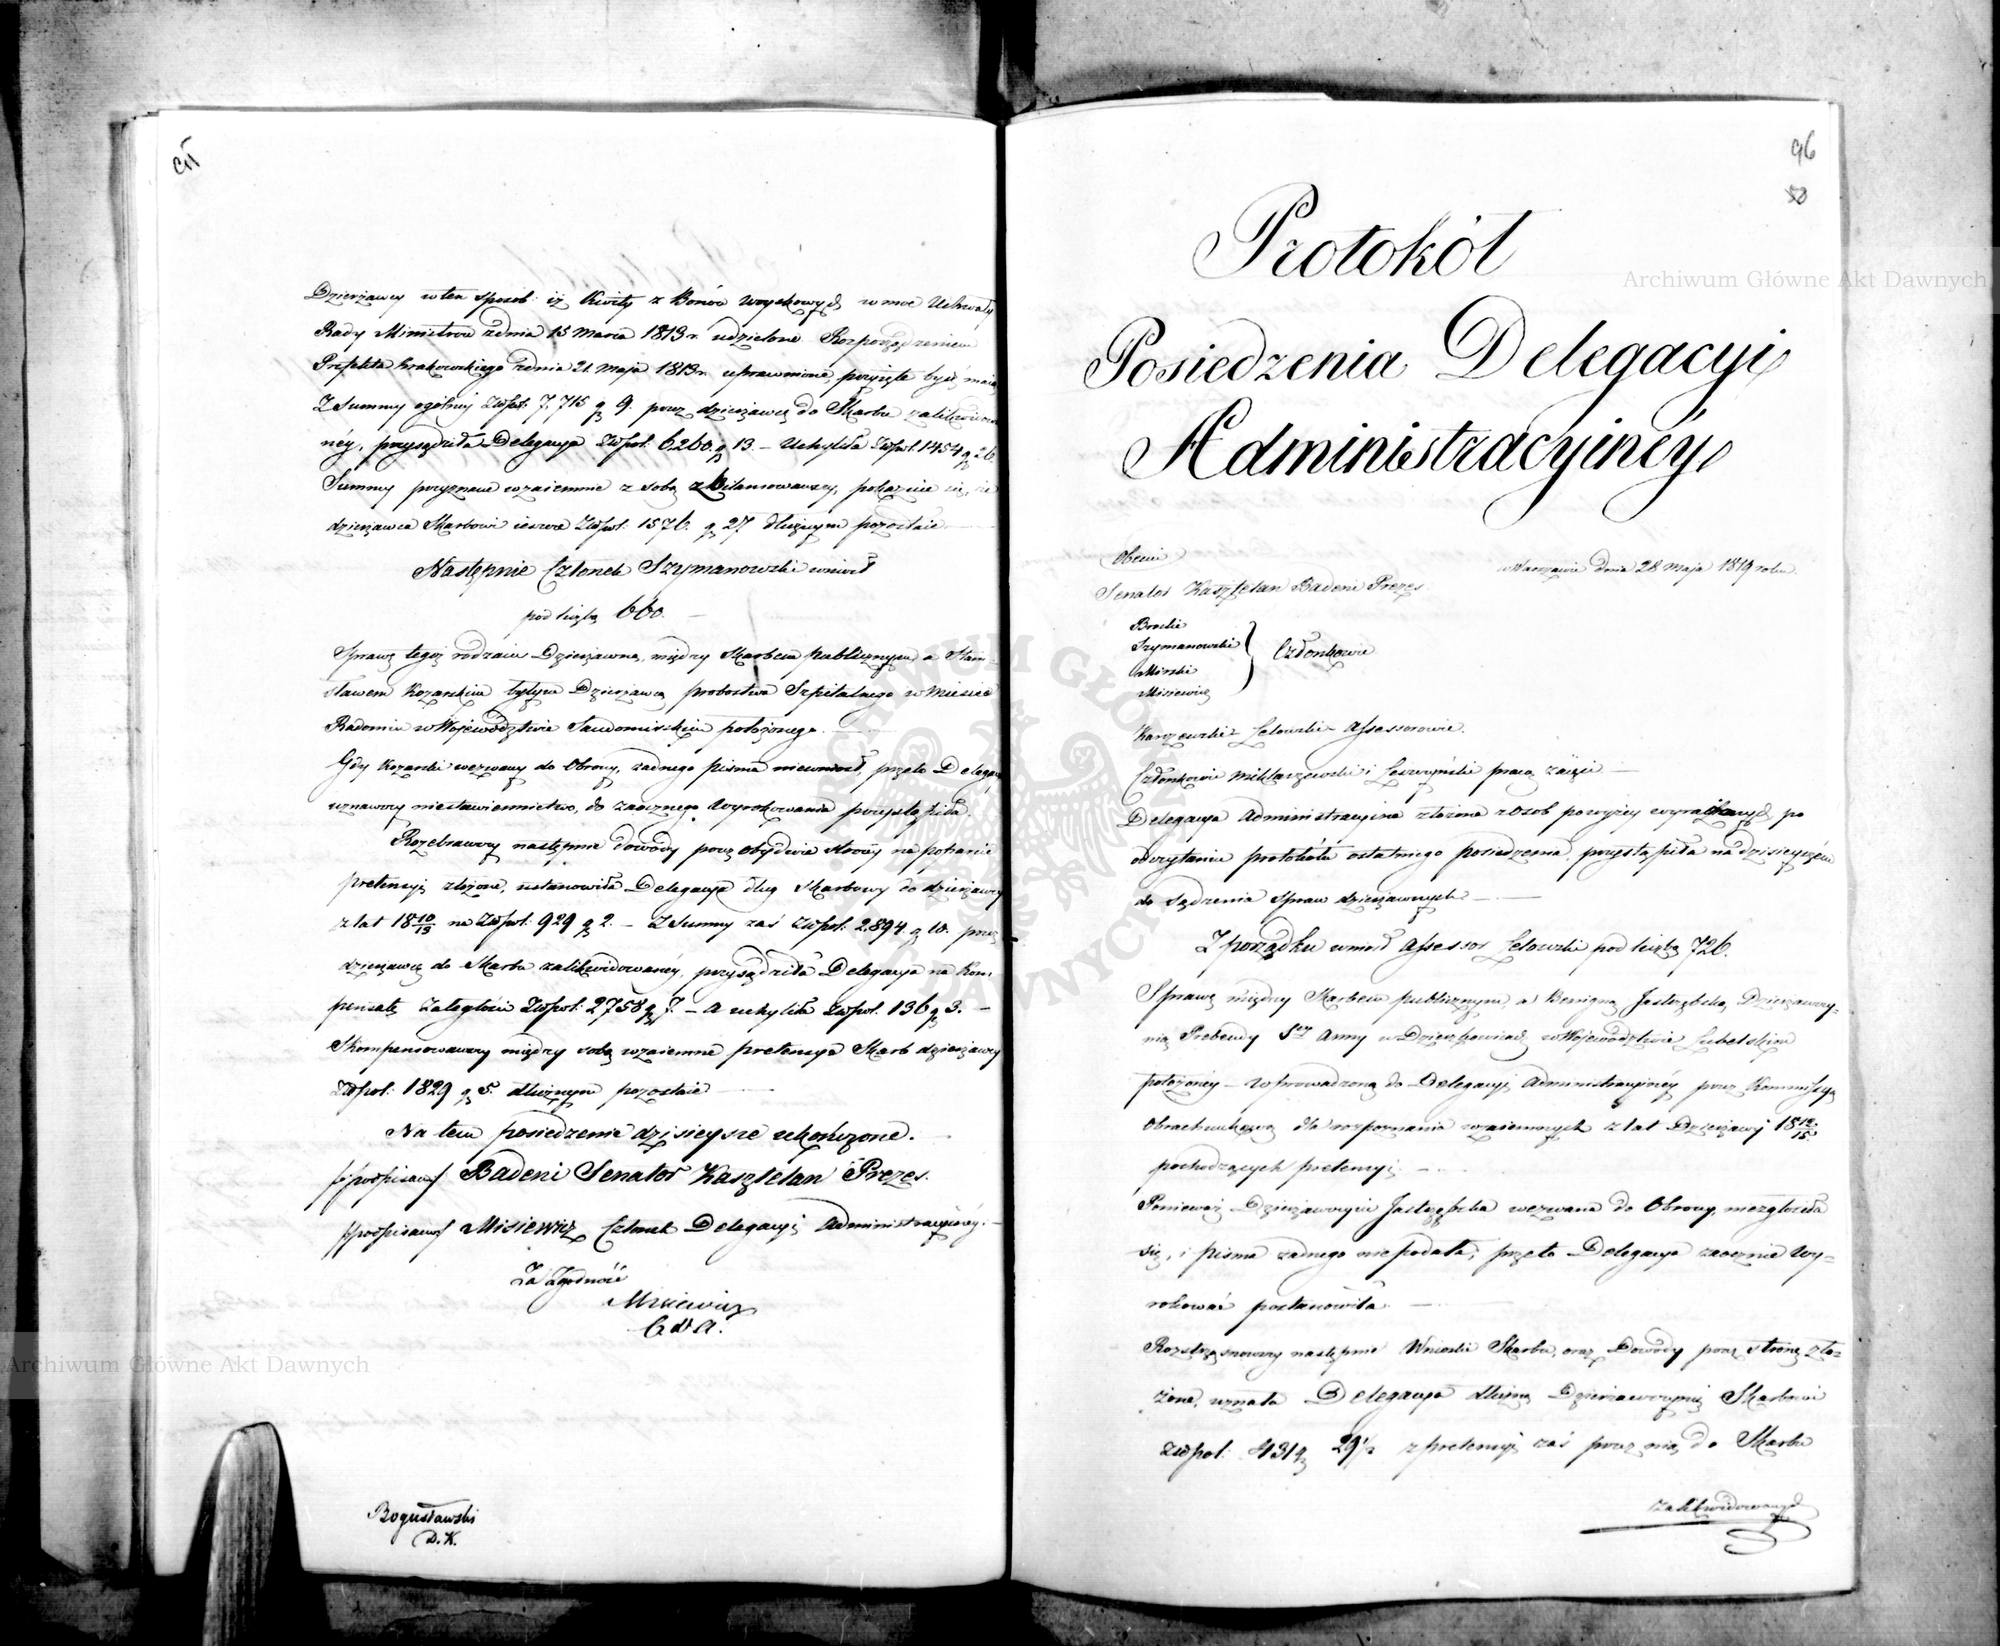 Dzierżawcy w ten sposób: iż Kwity z Bonów woyskowych w moc Uchwały
Rady Ministrów z dnia 15 Marca 1813 r. udzielone Rozporządzeniem
Prefekta Krakowskiego z dnia 21. Maja 1813 r. uprawnione, przyięte być maią
Z Summy ogólney Złpol. 7,715 g 9. przez dzierżawcę do Skarbu zalikwidowa
ney, przysądziła Delegacya Złpol. 6260. g 13. – Uchyliła Złpol. 1454 g 26.
Summy przyznane wzaiemnie z sobą zbilansowawszy, pokazuie się, że
dzierżawca Skarbowi ieszcze Złpol. 1576. g 27 dłużnym pozostaie.
Następnie Członek Szymanowski wniosł
pod liczbą 660.
Sprawę tegoż rodzaiu Dzierżawną, między Skarbem publicznym, a Stani-
sławem Kozarskim byłym Dzierżawcą probostwa Szpitalnego w Mieście
Radomiu w Województwie Sandomirskim położonego.
Gdy Kozarski wezwany do Obrony, żadnego pisma niewniosł, przeto Delegacya
uznawszy niestawiennictwo, do zaocznego Wyrokowania przystąpiła.
Rozebrawszy następnie dowody przez obydwie strony na poparcie
pretensyi złożone, ustanowiła Delegacya dług Skarbowy do dzierżawcy
z lat 18 10/13 na Złpol. 929 g 2. – Z Summy zaś Złpol. 2894. g 10. przez
dzierżawcę do Skarbu zalikwidowaney, przysądziła Delegacya na Kom-
pensatę Zaległości Złpol. 2758 g 7. – a uchyliła Złpol. 136 g 3. –
Skompensowawszy między sobą wzaiemne pretensye Skarb dzierżawcy
Złpol. 1829 g 5. dłużnym pozostaie
Na tem posiedzenie dzisieysze ukończone.
/podpisano/ Badeni Senator Kasztelan Prezes.
/podpisano/ Misiewicz Członek Delegacyi Administracyiney. –
Za Zgodność
Misiewicz
C. D. A.
Bogusławski
D. K.
96
50
Protokół
Posiedzenia Delegacyi
Administracyiney
Obecni
w Warszawie dnia 28 Maja 1819 roku.
Senator Kasztelan Badeni Prezes.
Brocki
Szymanowski
Mirski
Misiewicz
Członkowie
Karzewski Letowski Assessorowie.
Członkowie Miklaszewski i Leszczyński pracą zaięci –
Delegacya Administracyina złożona z Osob powyżey wyrażonych, po
odczytaniu protokółu ostatniego posiedzenia, przystąpiła na dzisieyszém
do sądzenia Spraw dzierżawnych –
Z porządku wniosł Assessor Letowski pod liczbą 726.
Sprawę między Skarbem publicznym, a Benigną Jastrzębską, Dzierżawczy-
nią Prebendy Stey Anny w Dzierzkowicach w Województwie Lubelskim
położoney – wprowadzoną do Delegacyi Administracyiney przez Kommissyą
Obrachunkową dla rozpoznania wzaiemnych z lat Dzierżawy 18 12/15
pochodzących pretensyi. –
Ponieważ Dzierżawczyni Jastrzębska wezwana do Obrony, niezgłosiła
się, i pisma żadnego nie podała; przeto Delegacya zaocznie Wy-
rokować postanowiła. –
Roztrząsnowszy następnie Wnioski Skarbu, oraz Dowody przez stronę zło-
żone, uznała Delegacya dłużną Dzierżawczynię Skarbowi
Złpol. 431 g 29 1/2 z pretensyi zaś przez nią do Skarbu
zalikwidowanych
Archiwum Główne Akt Dawnych
Archiwum Główne Akt Dawnych
ARCHIWUM GŁÓWNE AKT DAWNYCH